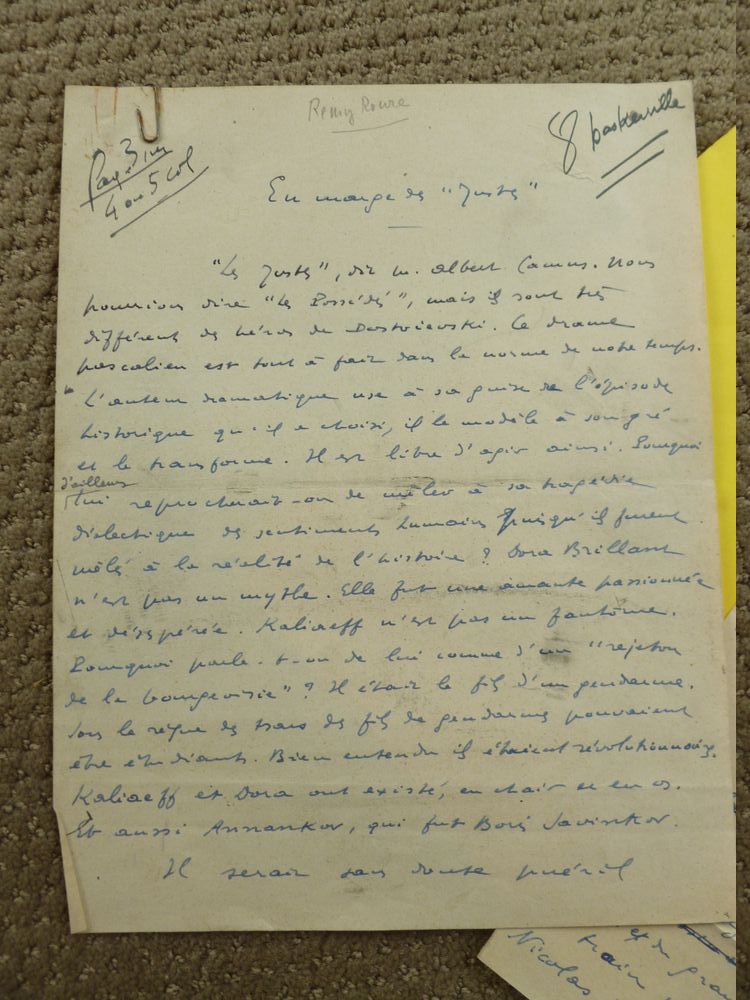 Remy Roure
8 baskerville
Page 3
4 ou 5 col
En marge des "Justes"
"Les Justes", dit M. Albert Camus. Nous
pourrions dire "Les Possédés", mais ils sont très
différents des héros de Dostoievski. Ce drame
pascalien est tout à fait dans la norme de notre temps.
L'auteur dramatique use à sa guise de l'épisode
historique qu'il a choisi, il le modèle à son gré
et le transforme. Il est libre d'agir ainsi. Pourquoi
d'ailleurs
lui reprocherait-on de mêler à sa tragédie
dialectique des sentiments humains puisqu'ils furent
mêlés à la réalité de l'histoire ? Dora Brillant
n'est pas un mythe. Elle fut une amante passionnée
et désespérée. Kaliaeff n'est pas un fantôme.
Pourquoi parle-t-on de lui comme d'un "rejeton
de la bourgeoisie" ? Il était le fils d'un gendarme.
Sous le règne des tsars des fils de gendarmes pouvaient
être étudiants. Bien entendu ils étaient révolutionnaires.
Kaliaeff et Dora ont existé, en chair et en os.
Et aussi Annankov, qui fut Boris Savinkov.
Il serait sans doute puéril
et de
train
Nicolas